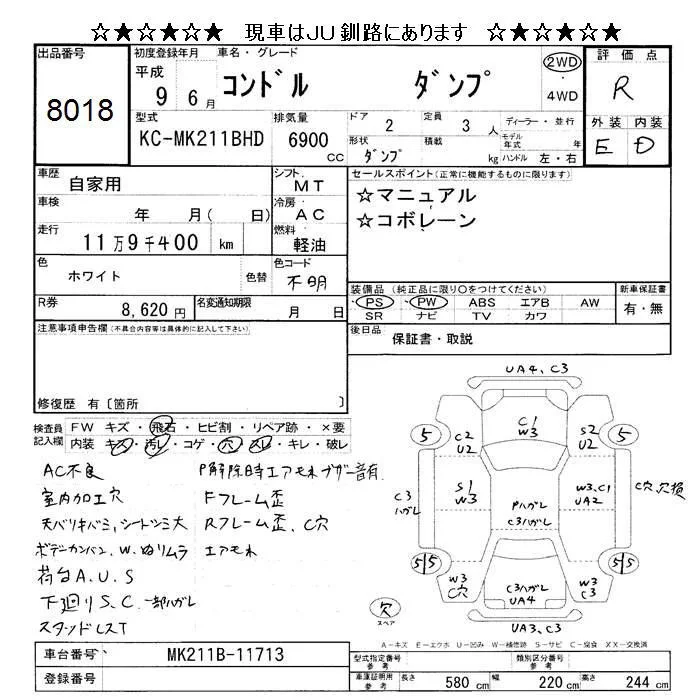 ☆★☆★☆★ 現車はJU釧路にあります ☆★☆★☆★
出品番号
8018
初度登録年月
平成 9年 6月
車名・グレード
コンドル ダンプ
2WD
・
4WD
評価点
R
外装 内装
E D
型式
KC-MK211BHD
排気量
6900
cc
ドア 2
定員 3 人
形状 ダンプ
積載 kg
ディーラー・並行
モデル年式 年
ハンドル 左・右
車歴 自家用
シフト MT
車検 年 月( 日)
冷房 AC
走行 11万9千400 km
燃料 軽油
色 ホワイト 色替
色コード 不明
R券 8,620円
名変通知期限 月 日
セールスポイント(正常に機能するものに限ります)
☆マニュアル
☆コボレーン
装備品(純正品に限り○をつけてください)
PS PW ABS エアB AW
SR ナビ TV カワ
新車保証書
有・無
後日品 保証書・取説
注意事項申告欄(不具合内容等は具体的に記入して下さい)
修復歴 有〔箇所 〕
検査員記入欄
FW キズ・飛石・ヒビ割・リペア跡・×要
内装 キズ・汚レ・コゲ・穴・スレ・キレ・破レ
AC不良
室内加工穴
天バリキバミ、シートシミ大
ボデーカンバン、W、ぬりムラ
荷台A、U、S
下廻りS、C、一部ハガレ
スタンドLST
P解除時エアモレブザー音有
Fフレーム歪
Rフレーム歪、C穴
エアモレ
UA4、C3
C1
W3
5
5
C2
U2
S2
U2
C3
ハガレ
S1
W3
Pハガレ
C3ハガレ
W3、C1
UA2
C穴、欠損
5|5
5|5
W3
C穴
C3ハガレ
UA4
W3
C3
欠
スペア
UA3、C3
A-キズ E-エクボ U-凹み W-補修跡 S-サビ C-腐食 XX-交換済
車台番号 MK211B-11713
登録番号
型式指定番号
参考
類別区分番号
参考
車庫証明用
参考
長さ 580 cm
幅 220 cm
高さ 244 cm